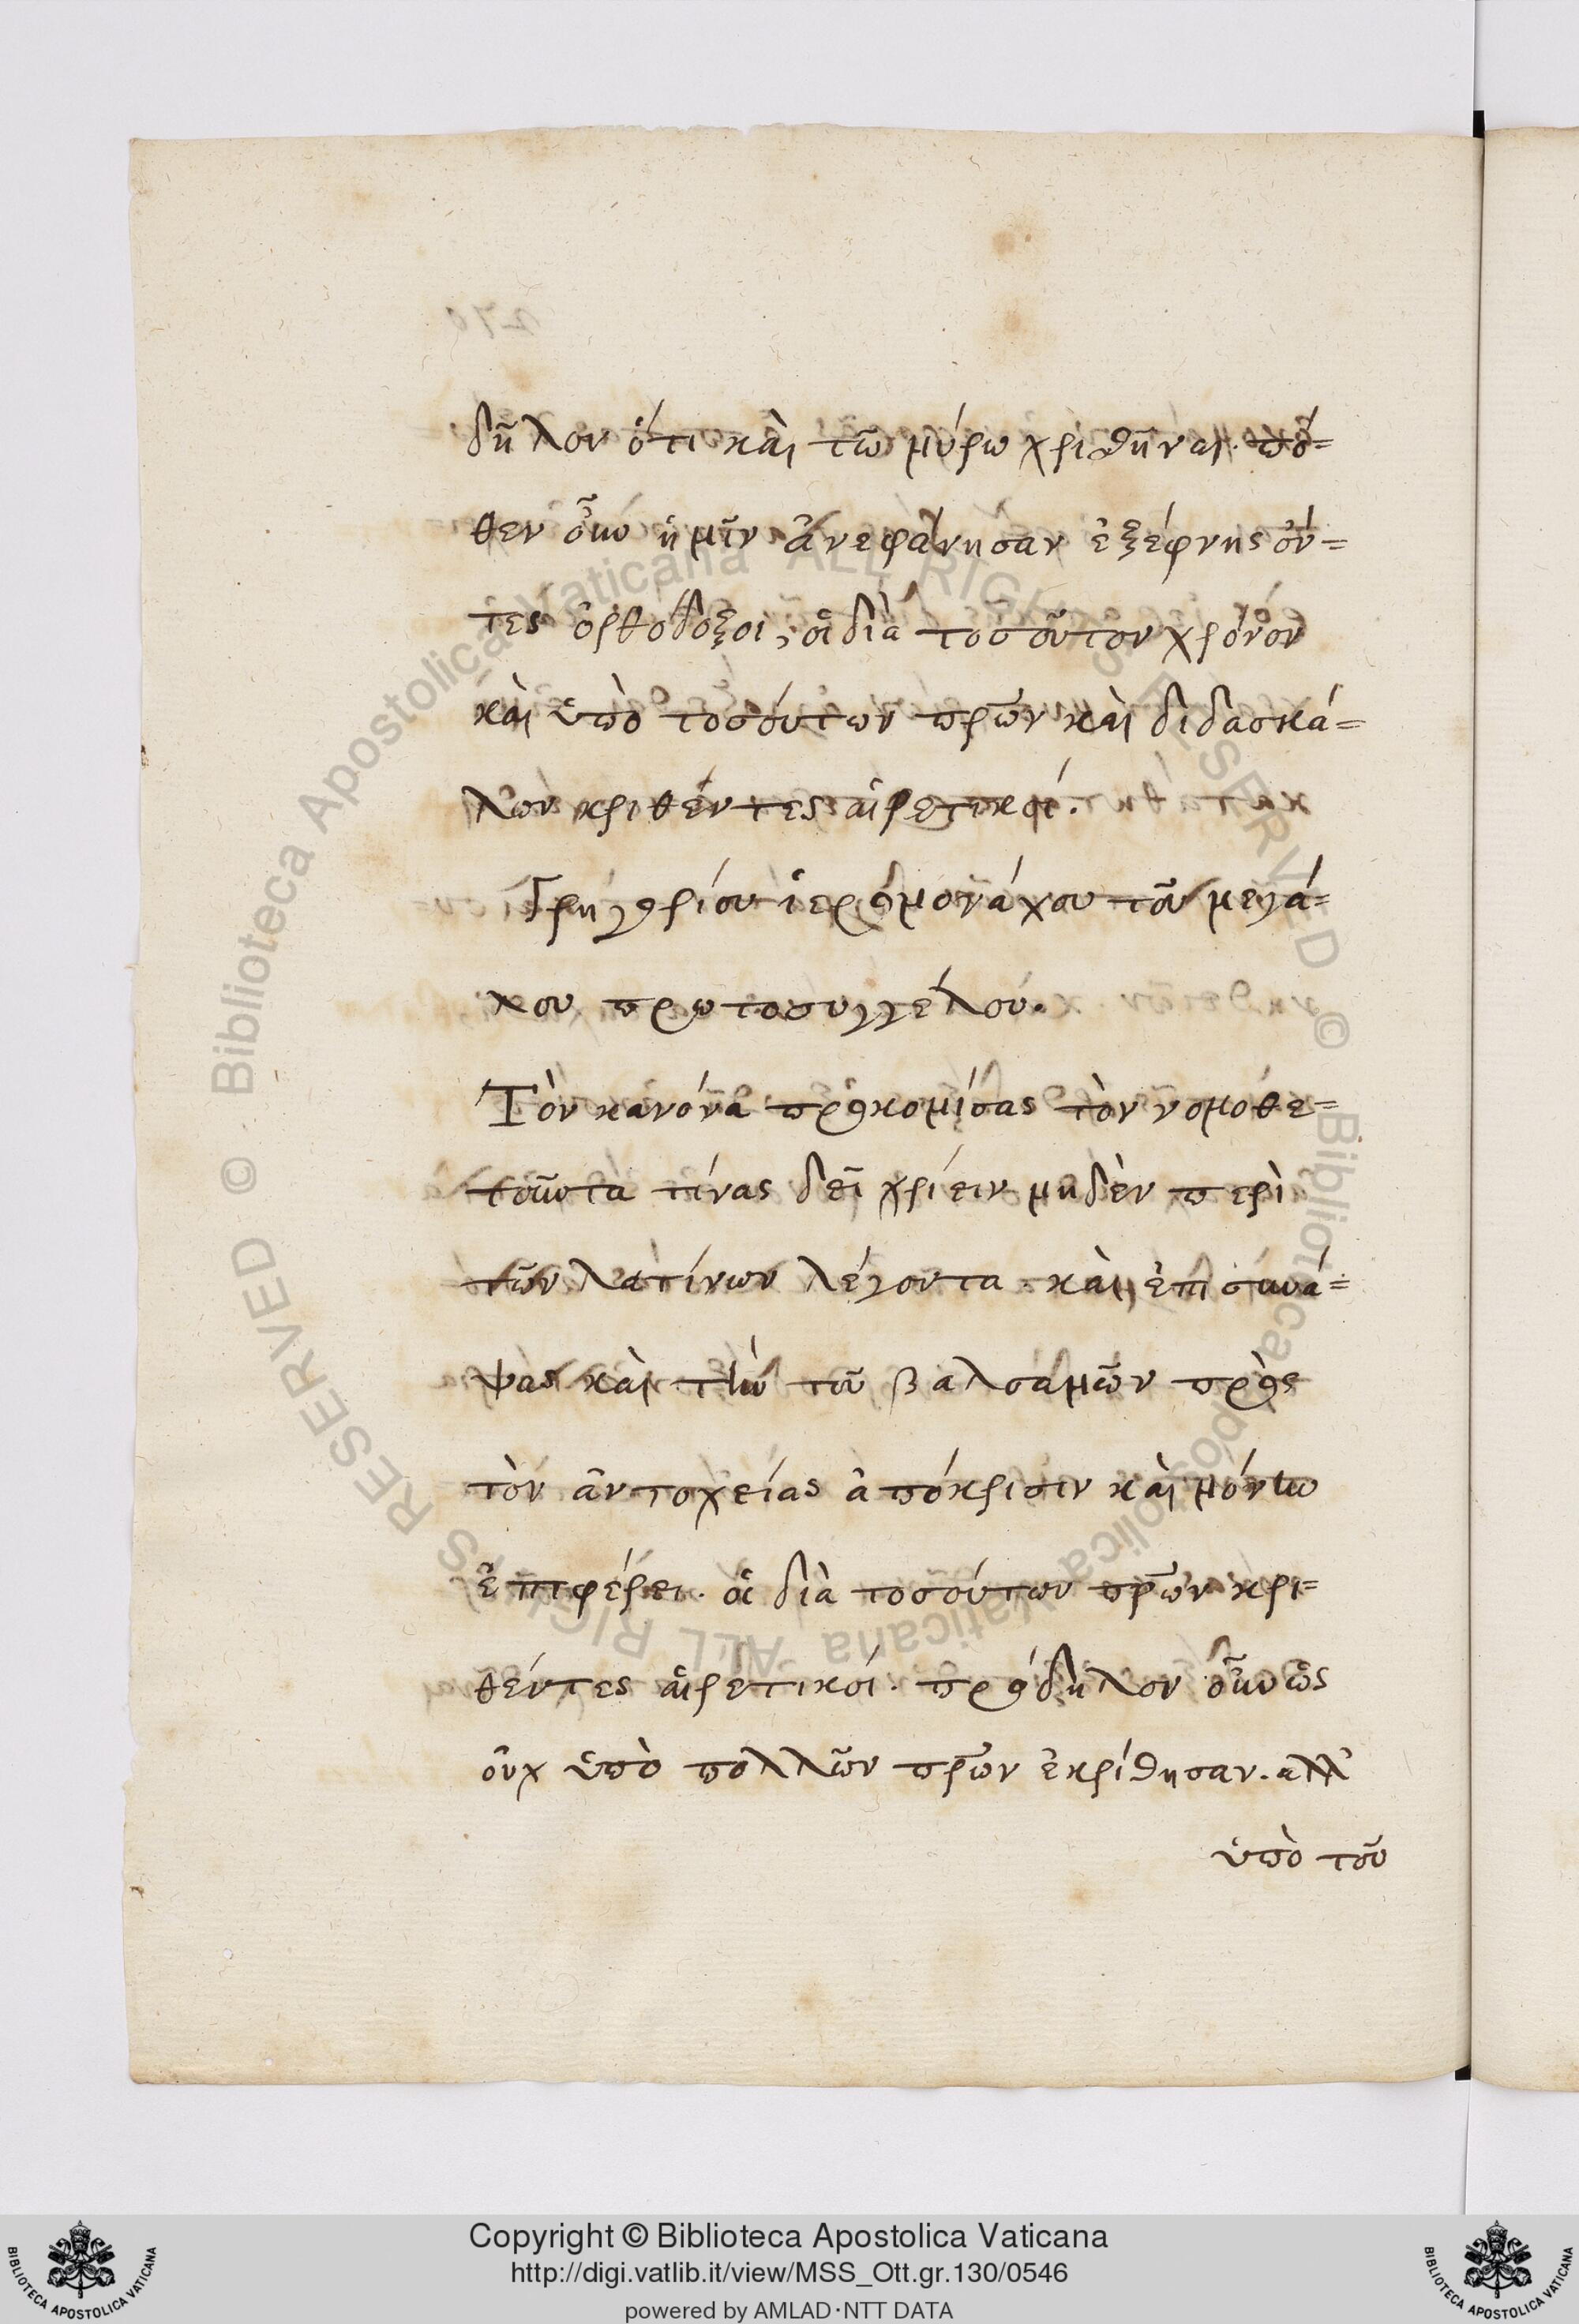 δῆλον ὅτι καὶ τῶ μύρω χριθῆναι. πό=
θεν οὖν ἡμῖν ἀνεφάνησαν ἐξέφνης ὄν=
τες ὀρθόδοξοι, οἱ διὰ τοσοῦτον χρόνον
καὶ ὑπὸ τοσούτων πρων καὶ διδασκά=
λων κριθέντες αἱρετικοί.
Γρηγορίου ἱερομονάχου τοῦ μεγά=
λου πρωτοσυγγέλου.
Τὸν κανόνα προκομίσας τὸν νομοθε=
τοῦντα τίνας δεῖ χρίειν μηδὲν περὶ
τῶν λατίνων λέγοντα καὶ ἐπισυνά=
ψας καὶ τὴν τοῦ βαλσαμῶν πρὸς
τὸν ἀντιοχείας ἀπόκρισιν καὶ μόνην
ἐπιφέρει. οἱ διὰ τοσούτων πρων κρι=
θέντες αἱρετικοί. πρόδηλον οὖν ὡς
οὐχ ὑπὸ πολλῶν πρων ἐκρίθησαν. ἀλλ'
ὑπὸ τοῦ
Copyright © Biblioteca Apostolica Vaticana
http://digi.vatlib.it/view/MSS_Ott.gr.130/0546
powered by AMLAD·NTT DATA